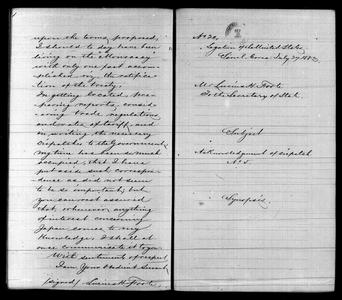 upon the terms proposed,
I should to day have been
living on the Monocacy
with only one part accom-
plished viz, the ratifica-
tion of the Treaty.
In getting located, pre-
paring reports, consid-
ering trade regulations,
and rates of tariff, and
in writing the necessary
Dispatches to the Government,
my time has been much
occupied; that I have
put aside such correspon-
dence as did not seem
to be so important, but
you can rest assured
that, whenever anything
of interest concerning
Japan comes to my
knowledge, I shall at
once communicate it to you.
With sentiments of respect
I am Your obedient Servant
(signed) Lucius H. Foote
No 20
Legation of the United States,
Seoul, Corea, July 27, 1883
Mr Lucius H. Foote
To the Secretary of State
Subject
Acknowledgment of Dispatch
No 5.
Synopsis